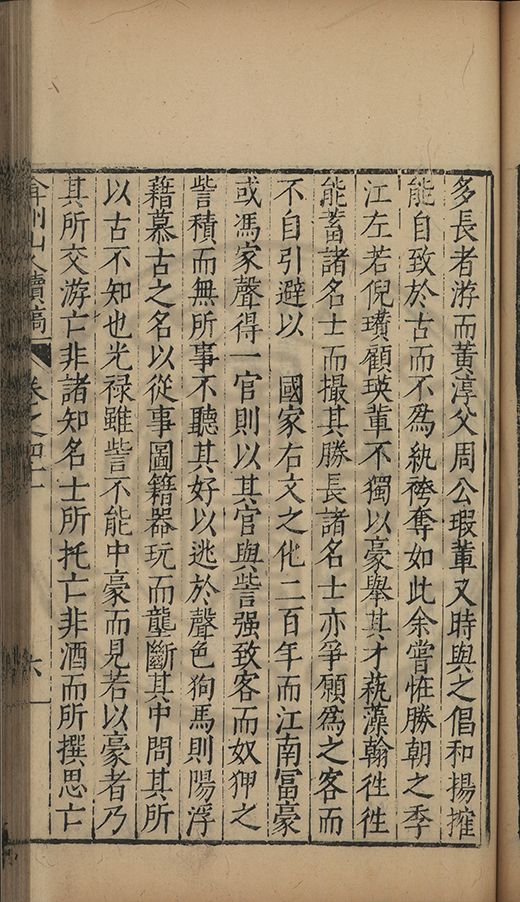 多長者游而黃淳父周公瑕軰又時與之倡和揚搉
能自致於古而不爲紈袴奪如此余嘗恠勝朝之季
江左若倪瓚顧瑛軰不獨以豪舉其才蓺藻翰徃徃
能蓄諸名士而撮其勝長諸名士亦爭願爲之客而
不自引避以　國家右文之化二百年而江南冨豪
或馮家聲得一官則以其官與訾强致客而奴狎之
訾積而無所事不聽其好以逃於聲色狗馬則陽浮
藉慕古之名以從事圖籍器玩而壟斷其中問其所
以古不知也光禄雖訾不能中豪而見若以豪者乃
其所交游亡非諸知名士所托亡非酒而所撰思亡
弇州山人續稿　卷之四十　六